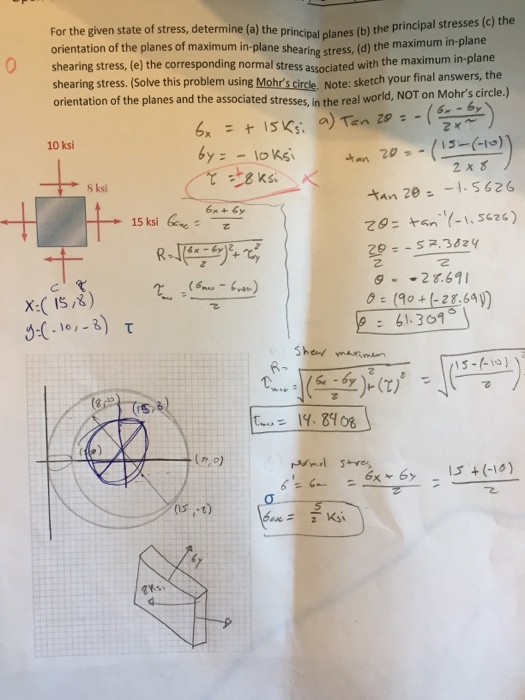 For the given state of stress, determine (a) the principal planes (b) the principal stresses (c) the
orientation of the planes of maximum in-plane shearing stress, (d) the maximum in-plane
shearing stress, (e) the corresponding normal stress associated with the maximum in-plane
shearing stress. (Solve this problem using Mohr's circle. Note: sketch your final answers, the
orientation of the planes and the associated stresses, in the real world, NOT on Mohr's circle.)
0
10 ksi
8 ksi
15 ksi
6x = + 15 Ksi
6y = - 10 Ksi
τ = ±8 Ksi
6ave = 6x + 6y / 2
R = √(6x - 6y / 2)² + τxy²
a) Tan 2θ = - (6x - 6y / 2×τ)
tan 2θ = - (15-(-10) / 2 × 8)
tan 2θ = -1.5626
2θ = tan⁻¹(-1.5626)
2θ / 2 = -57.3824 / 2
θ = -28.691
θ = (90 + (-28.691))
θ = 61.309°
X:( 15,8)
y:(-10,-8) τ
Shear maximum
R =
τmax = √(6x - 6y / 2)² + (τ)² = √(15-(-10) / 2)
τmax = 14.8408
normal stress
= 6x + 6y / 2 = 15 + (-10) / 2
σ
6ave = 5/2 Ksi
6y
8Ksi